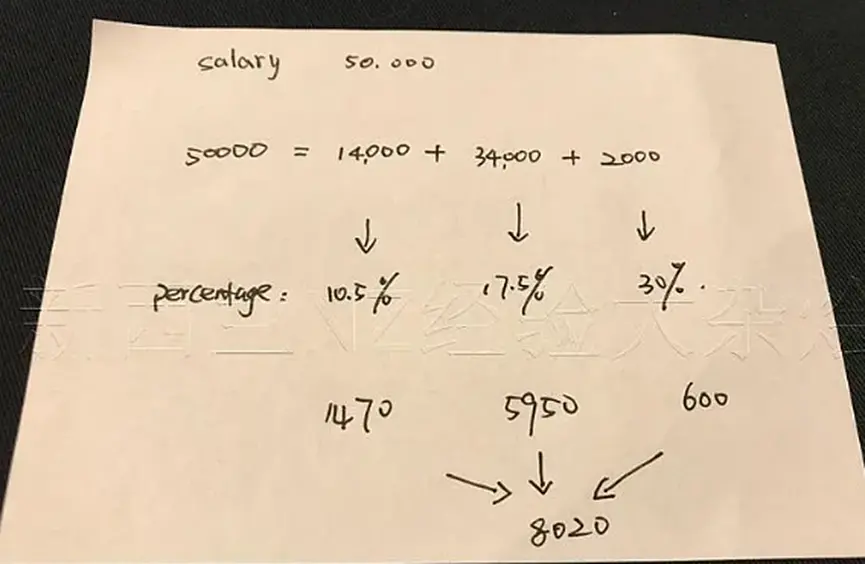 salary 50.000
50000 = 14,000 + 34,000 + 2000
↓ ↓ ↓
percentage: 10.5% 17.5% 30%.
新西兰NZ经验大杂烩
1470 5950 600
↘ ↓ ↙
8020